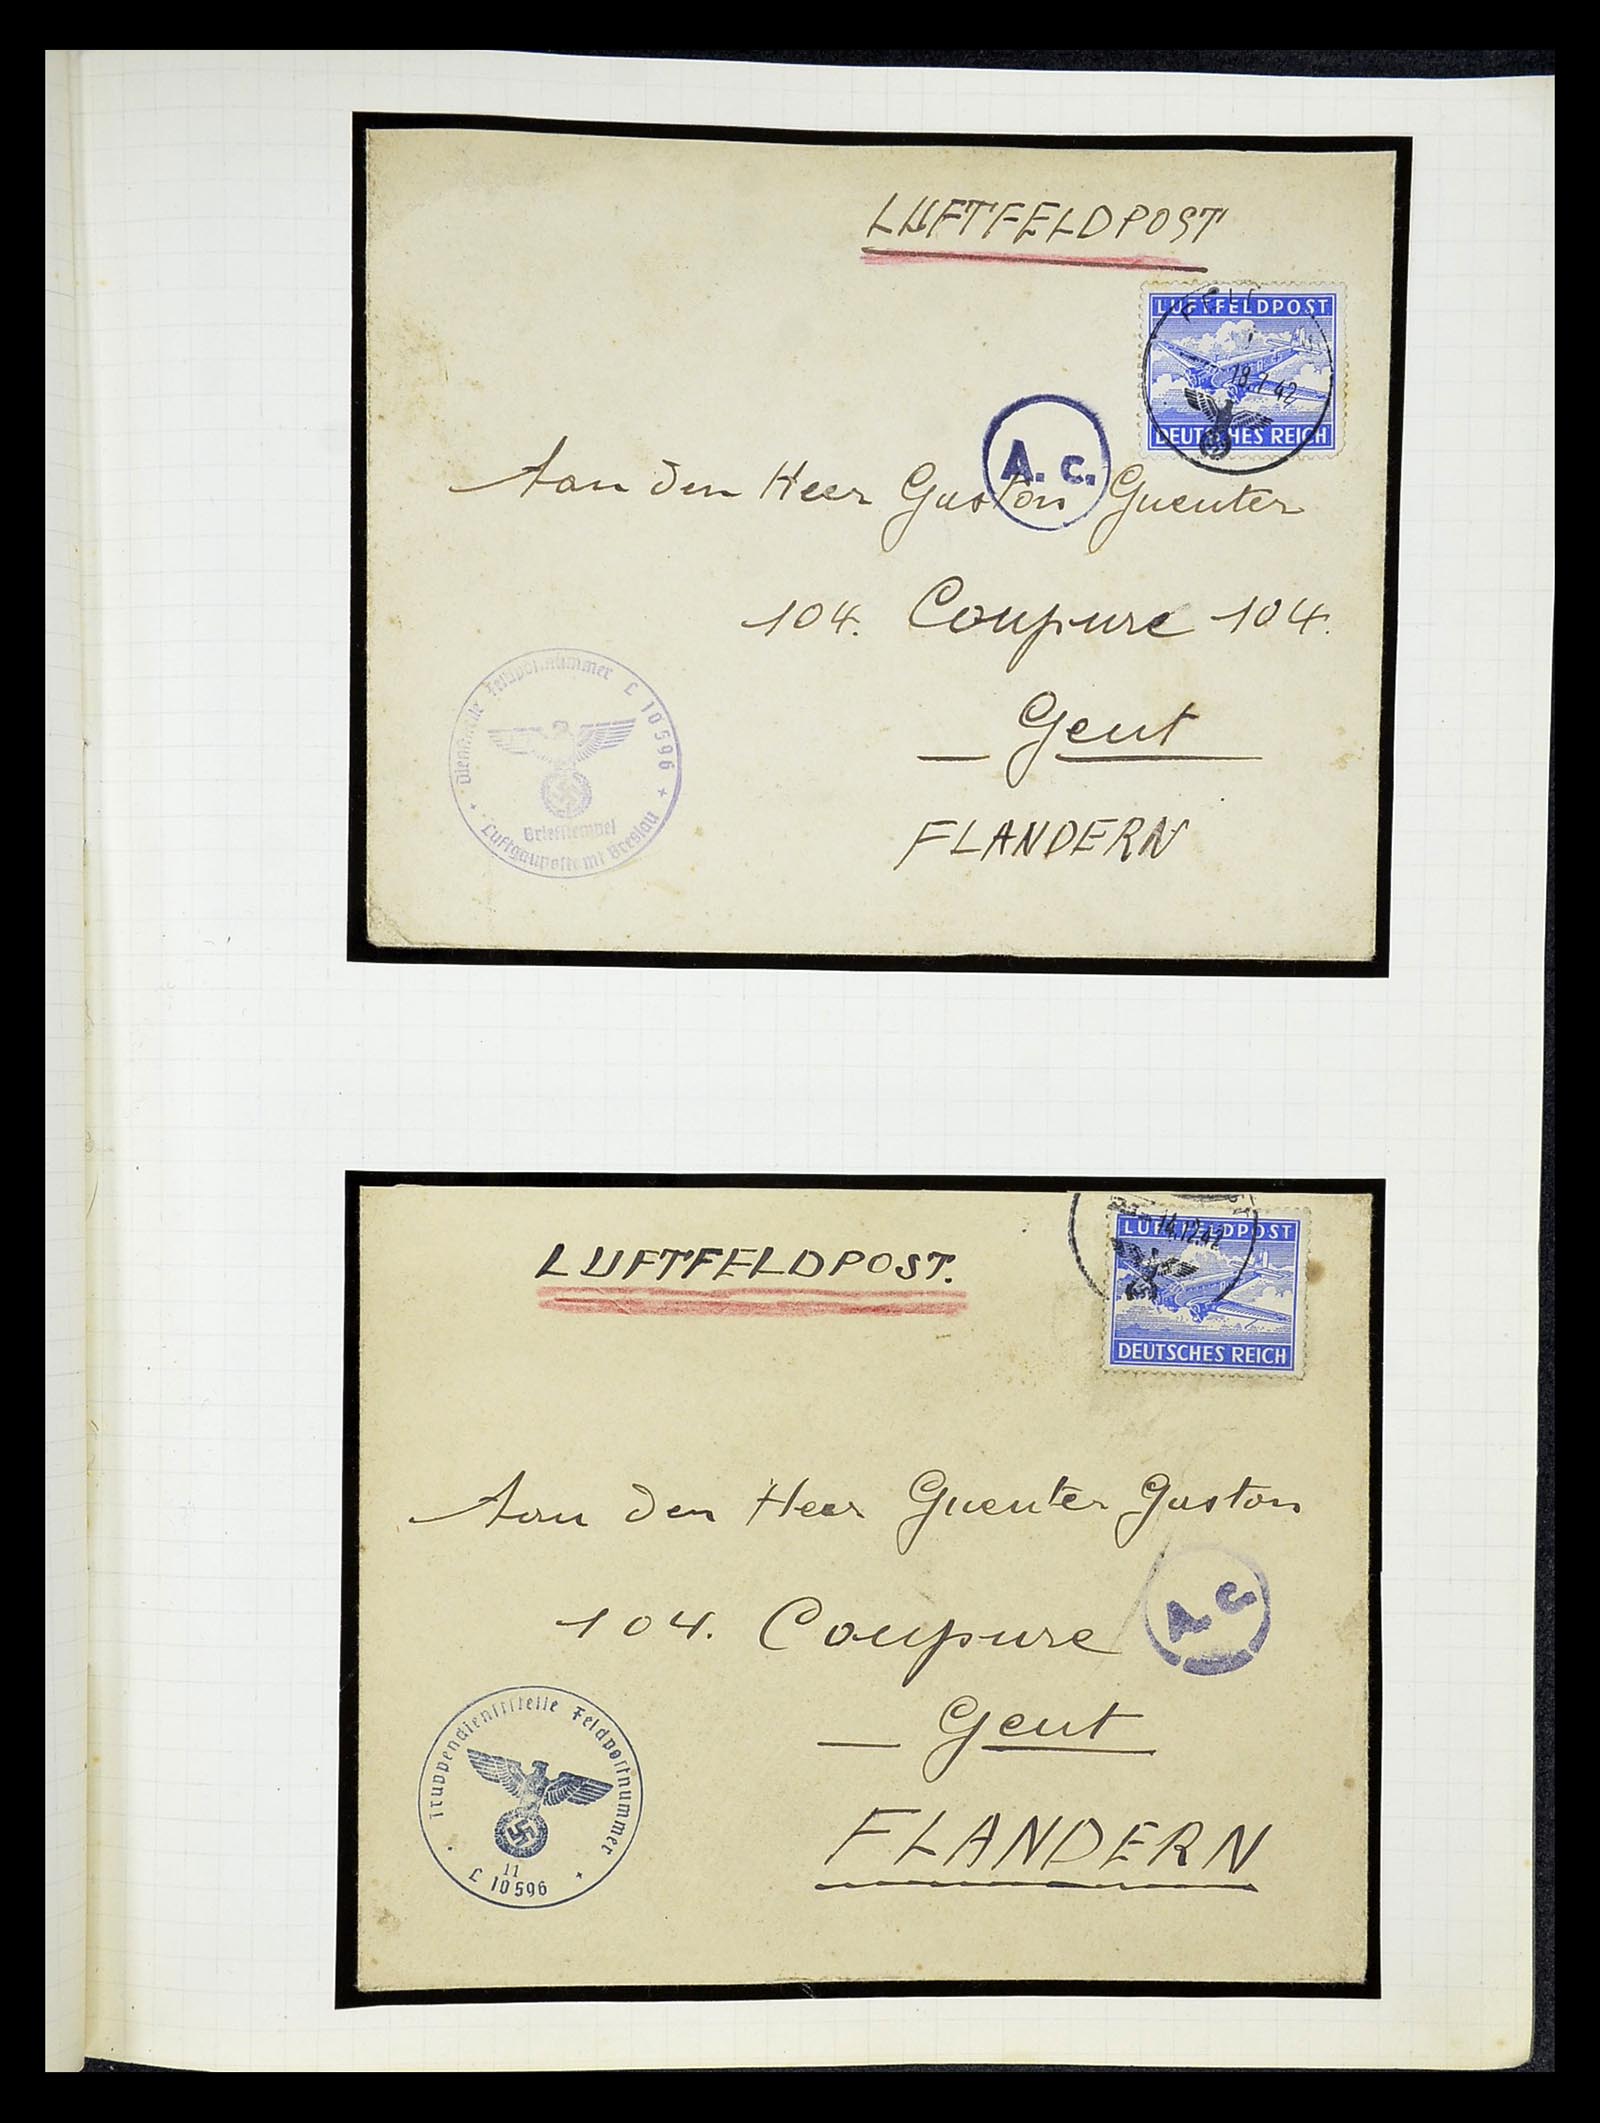 LUFTFELDPOST
LUFTFELDPOST
18.7.42
DEUTSCHES REICH
A. c.
Aan den Heer Gaston Guenter
104. Coupure 104.
Gent
FLANDERN
Dienststelle Feldpostnummer L 10596
Briefstempel
Luftgaupostamt Breslau
LUFTFELDPOST.
LUFTFELDPOST
14.12.42
DEUTSCHES REICH
Aan den Heer Guenter Gaston
104. Coupure
A c
Gent
FLANDERN
Truppendienststelle Feldpostnummer
11
L 10596